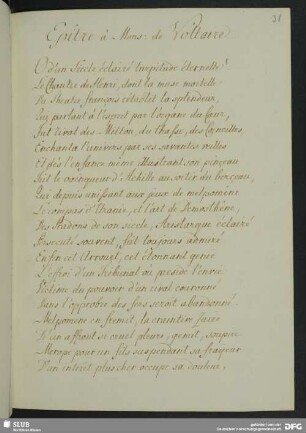 31
Epitre à Mons: de Voltaire
O d'un Siècle éclairé turpitude éternelle!
Le Chantre de Henri, dont la muse mortelle
Du Theatre françois rétablit la splendeur,
Qui parlant à l'esprit par l'organe du Cœur,
fut l'égal des Milton, du Thasse, des Corneilles,
Enchanta l'univers par ses savantes veilles
Et dès l'enfance même illustrant son pinceau
fut le vainqueur d'Achille au sortir du berceau,
Qui depuis unissant aux jeux de melpomène
Le compas d'Uranie, et l'art de Demosthène,
Des Pradons de son siecle, Aristarque éclairé
Persecuté souvent, fut toujours admiré
Enfin cet Arrouet, cet étonnant genie
L'effroi d'un Tribunal où preside l'envie
Victime du pouvoir d'un rival couronné
Dans l'opprobre des fers seroit abandonné.
Melpomene en fremit, la crainte
D'un affront si cruel pleure, gemit, soupire
Merope pour un fils suspendant sa frayeur
D'un interêt plus cher occupe sa douleur,
SLUB